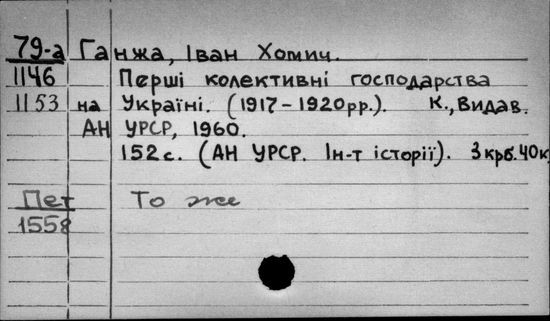 79-а Ганжа, Іван Хомич.
1146 Перші колективні господарства
1153 на Україні. (1917-1920рр.). К., Видав.
АН УРСР, 1960.
152с. (АН УРСР. Ін-т історії). 3крб.40к.
Пет То же
1558